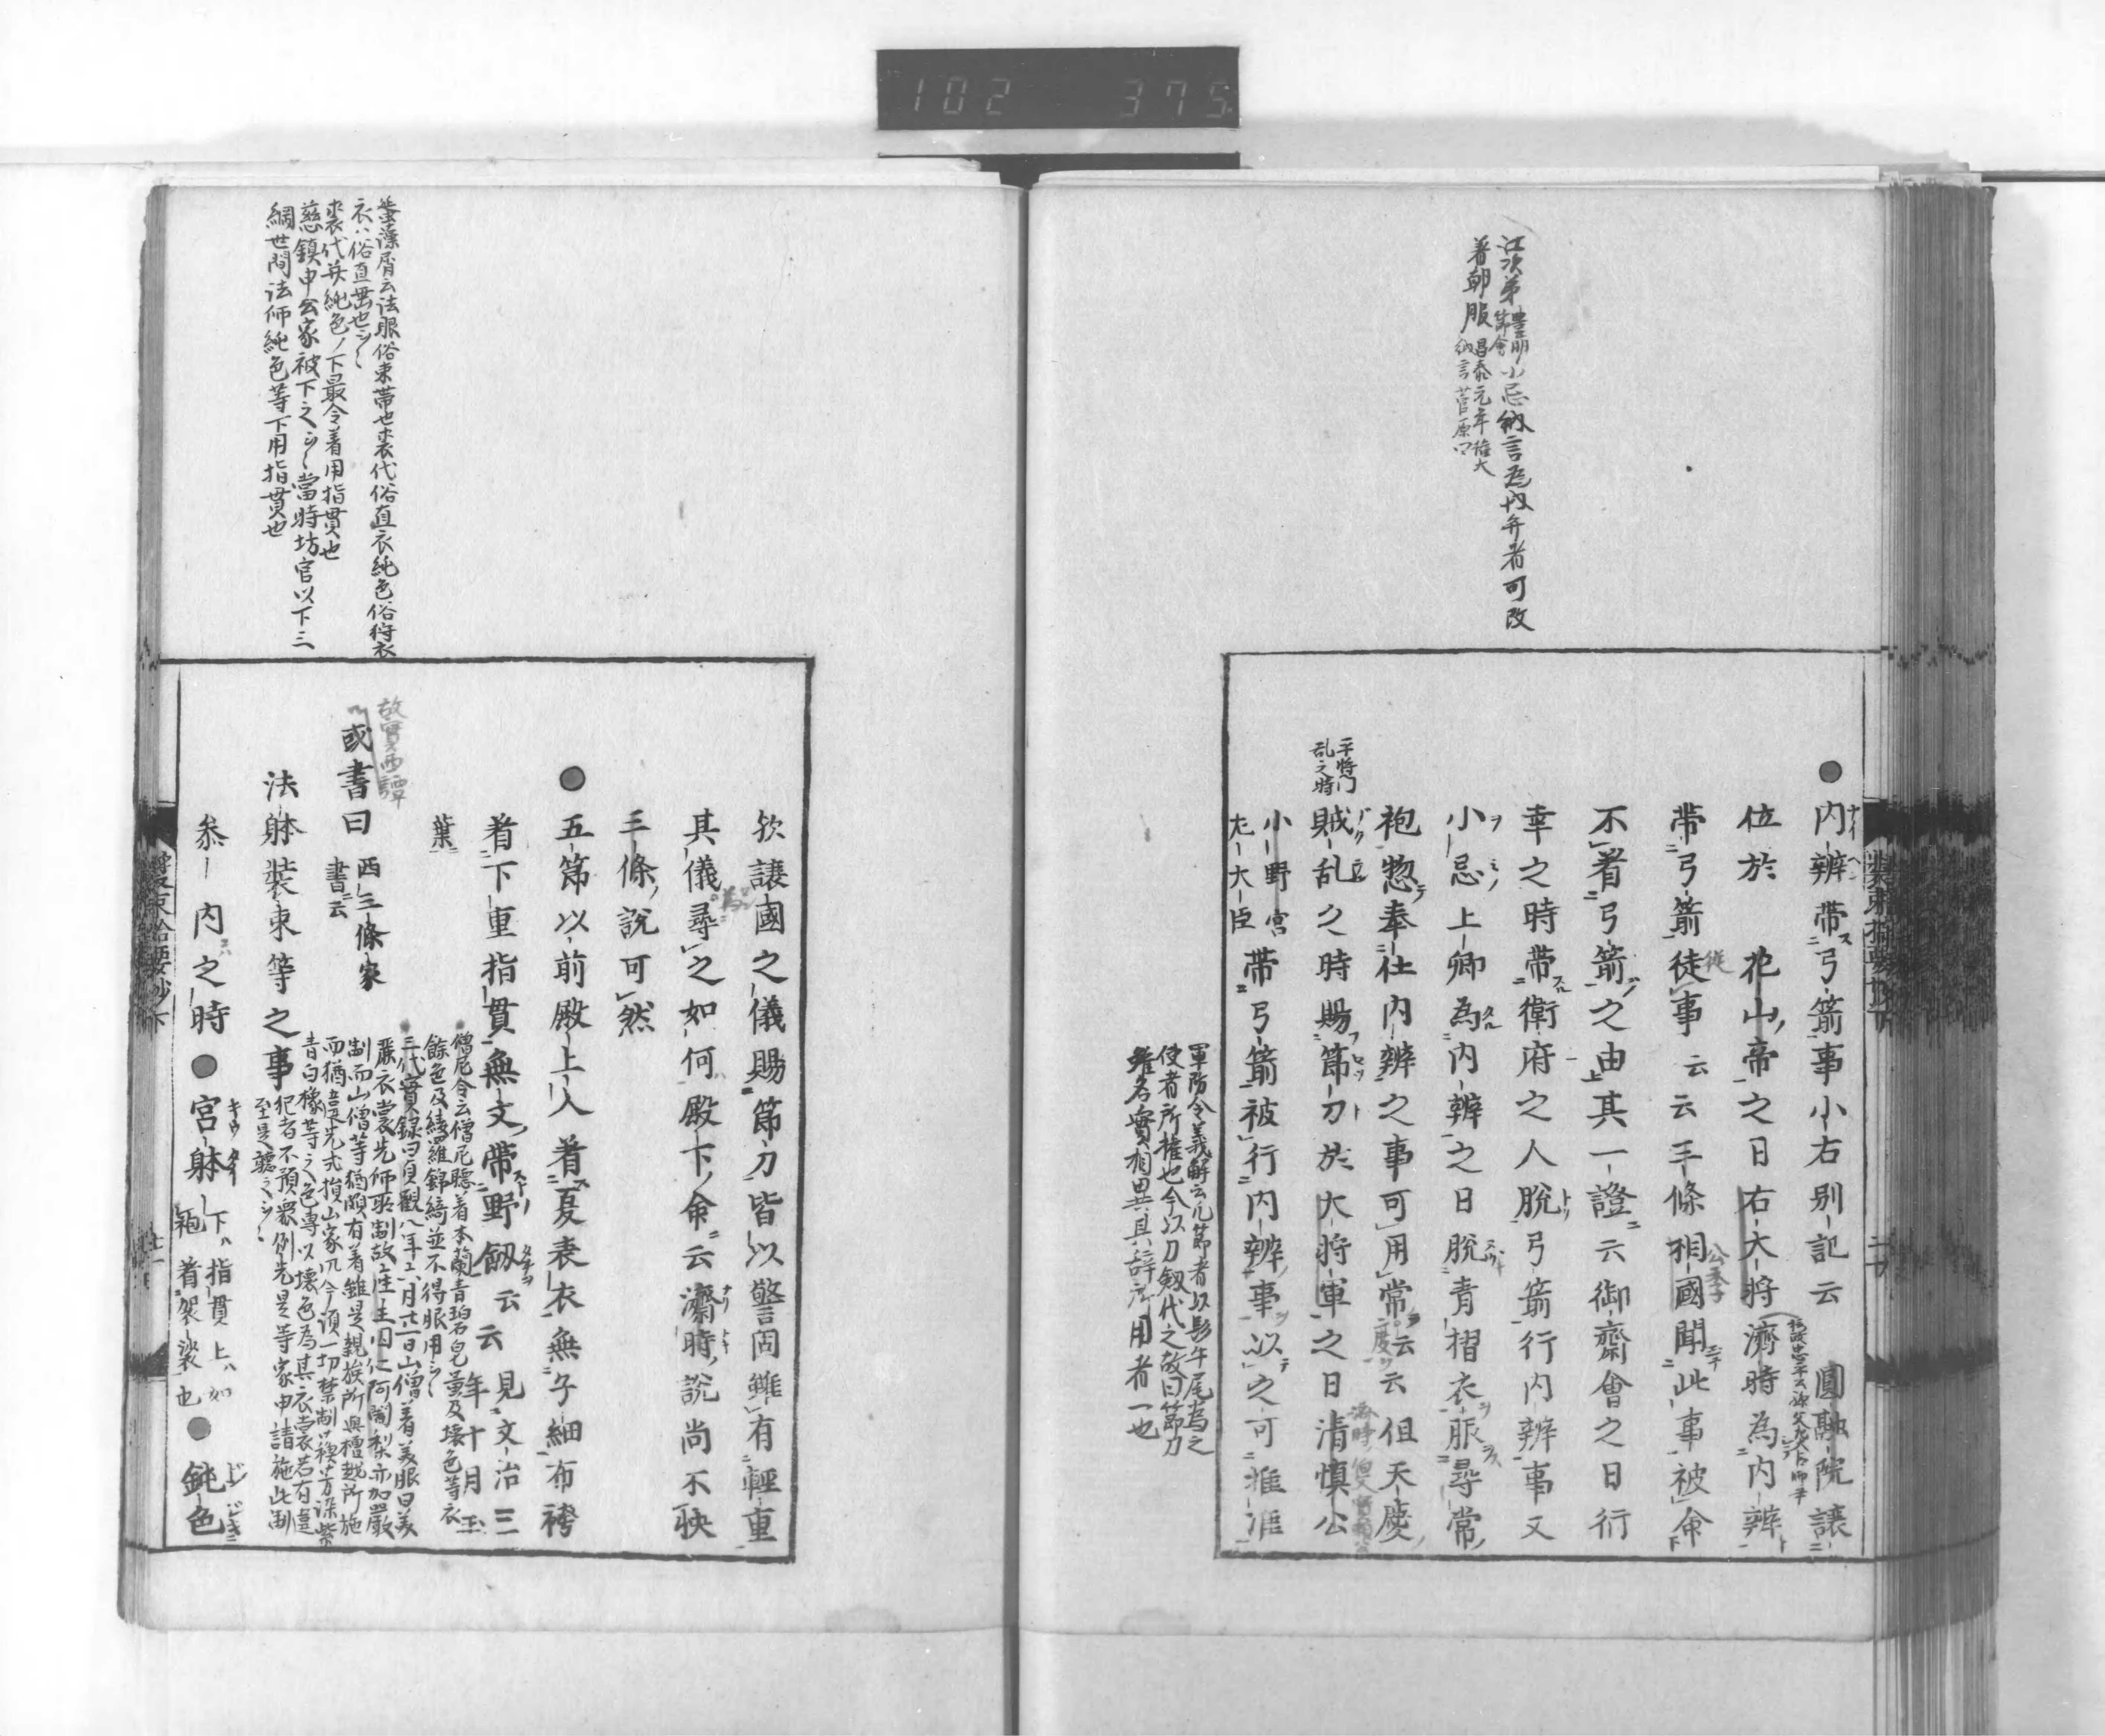 102 375
江次第豊明節會小忌納言為内弁者可改
着朝服昌泰元年権大納言菅原
●内辨帯弓箭事小右別記云 圓融院譲
位於 花山帝之日右大将濟時為内辨
帯弓箭徒事 云云 三條相國聞此事被命
不着弓箭之由其一證云御齋會之日行
幸之時帯衛府之人脱弓箭行内辨事又
小忌上卿為内辨之日脱青摺衣服尋常
袍惣奉仕内辨之事可用常云云但天慶
平将門乱之時
賊乱之時賜節刀於大将軍之日清慎公
小野宮左大臣帯弓箭被行内辨事以之可准
軍防令義解云凡節者以髦牛尾為之
使者所擁也今以刀劔代之故曰節刀
雖名實相異其辞所用者一也
欤譲國之儀賜節刀皆以警固雖有輕重
其儀尋之如何殿下命云濟時説尚不快
三條説可然
●五節以前殿上人着夏表衣無子細布袴
着下重指貫無文帯野劔云云見文治三年十月玉
葉
僧尼令云僧尼聴着木蘭青碧皂黄及壊色等衣
餘色及綾羅錦綺並不得服用云々
三代實録曰貞觀八年六月廿一日山僧着美服曰美
麗衣裳先師取制故座主円仁阿闍梨亦加嚴
制而山僧等猶頗有着雖是親族所與檀越所施
而猶違先式損山家風今須一切禁制
青白橡等之色專以壊色為其衣裳若有違
犯者不預衆例先是等家申請施此制
至是聴之云々
故實西譚
或書曰西三條家書云
法躰装束等之事
叅内之時●宮躰下ハ指貫上ハ如袍着袈裟也●鈍色
蜑藻屑云法服俗束帯也裘代俗直衣純色俗狩衣
衣ハ俗直垂也云々
裘代并純色ノ下最令着用指貫也
慈鎮申公家被下之云々當時坊官以下三
綱世間法師純色等下用指貫也